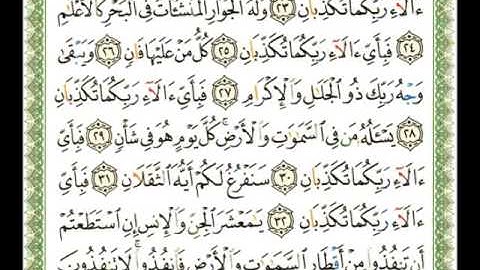 ءَالَآءِ رَبِّكُمَا تُكَذِّبَانِ ﴿٢٣﴾ وَلَهُ ٱلْجَوَارِ ٱلْمُنشَـَٔاتُ فِى ٱلْبَحْرِ كَٱلْأَعْلَـٰمِ
﴿٢٤﴾ فَبِأَىِّ ءَالَآءِ رَبِّكُمَا تُكَذِّبَانِ ﴿٢٥﴾ كُلُّ مَنْ عَلَيْهَا فَانٍ ﴿٢٦﴾ وَيَبْقَىٰ
وَجْهُ رَبِّكَ ذُو ٱلْجَلَـٰلِ وَٱلْإِكْرَامِ ﴿٢٧﴾ فَبِأَىِّ ءَالَآءِ رَبِّكُمَا تُكَذِّبَانِ
﴿٢٨﴾ يَسْـَٔلُهُۥ مَن فِى ٱلسَّمَـٰوَٰتِ وَٱلْأَرْضِ ۚ كُلَّ يَوْمٍ هُوَ فِى شَأْنٍ ﴿٢٩﴾ فَبِأَىِّ
ءَالَآءِ رَبِّكُمَا تُكَذِّبَانِ ﴿٣٠﴾ سَنَفْرُغُ لَكُمْ أَيُّهَ ٱلثَّقَلَانِ ﴿٣١﴾ فَبِأَىِّ
ءَالَآءِ رَبِّكُمَا تُكَذِّبَانِ ﴿٣٢﴾ يَـٰمَعْشَرَ ٱلْجِنِّ وَٱلْإِنسِ إِنِ ٱسْتَطَعْتُمْ
أَن تَنفُذُوا۟ مِنْ أَقْطَارِ ٱلسَّمَـٰوَٰتِ وَٱلْأَرْضِ فَٱنفُذُوا۟ ۚ لَا تَنفُذُونَ